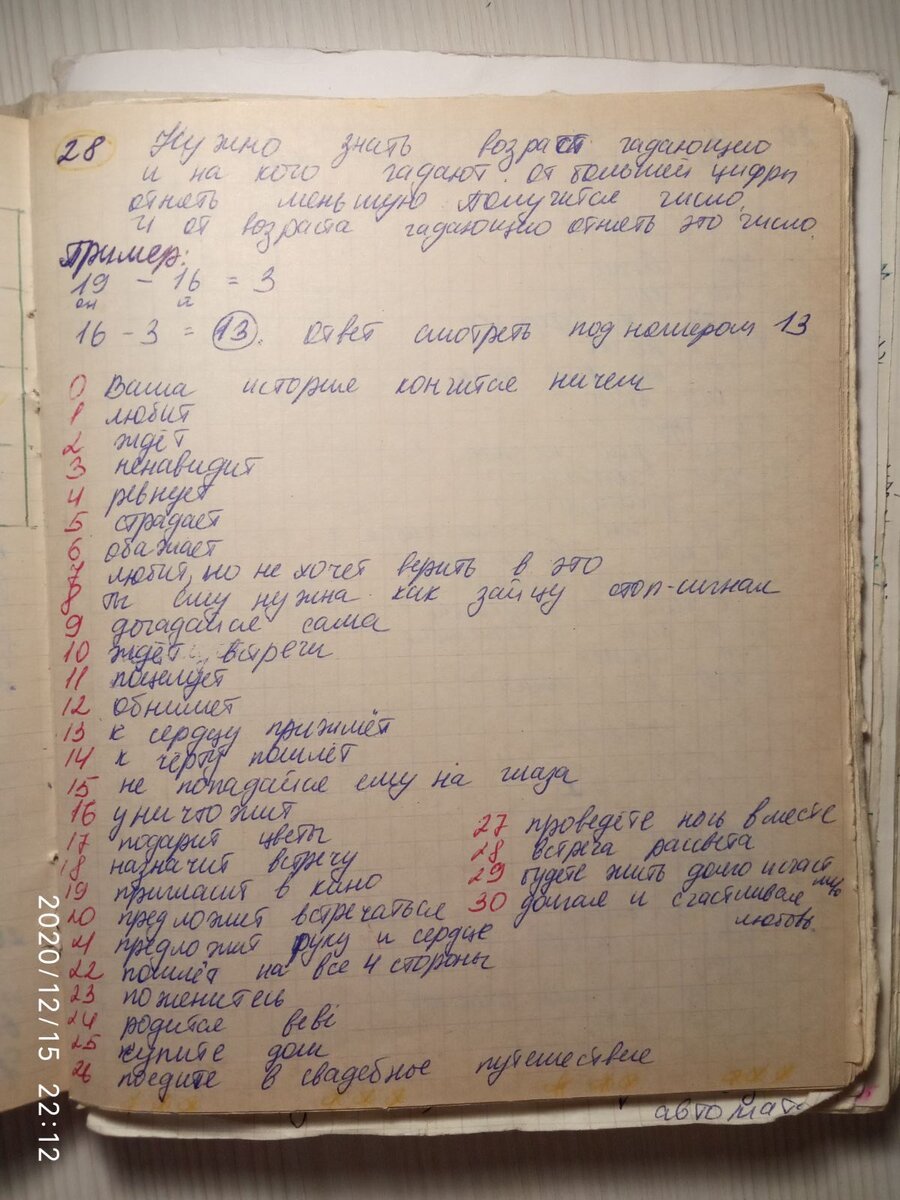 28 Нужно знать возраст гадающего
и на кого гадают. от большей цифры
отнять меньшую получится число.
И от возраста гадающего отнять это число.
Пример:
19 - 16 = 3
он я
16 - 3 = 13. ответ смотреть под номером 13
0 Ваша история кончится ничем
1 любит
2 ждёт
3 ненавидит
4 ревнует
5 страдает
6 обажает
7 любит, но не хочет верить в это
8 ты ему нужна как зайцу стоп-сигнал
9 догадайся сама
10 ждёт встречи
11 поцелует
12 обнимет
13 к сердцу прижмёт
14 к чёрту пошлёт
15 не попадайся ему на глаза
16 уничтожит
17 подарит цветы
18 назначит встречу
19 пригласит в кино
20 предложит встречаться
21 предложит руку и сердце
22 пошлёт на все 4 стороны
23 поженитесь
24 родится беби
25 купите дом
26 поедите в свадебное путешествие
27 проведёте ночь вместе
28 встреча рассвета
29 будете жить долго и счастливо
30 долгая и счастливая
любовь.
автомат
2020/12/15 22:12